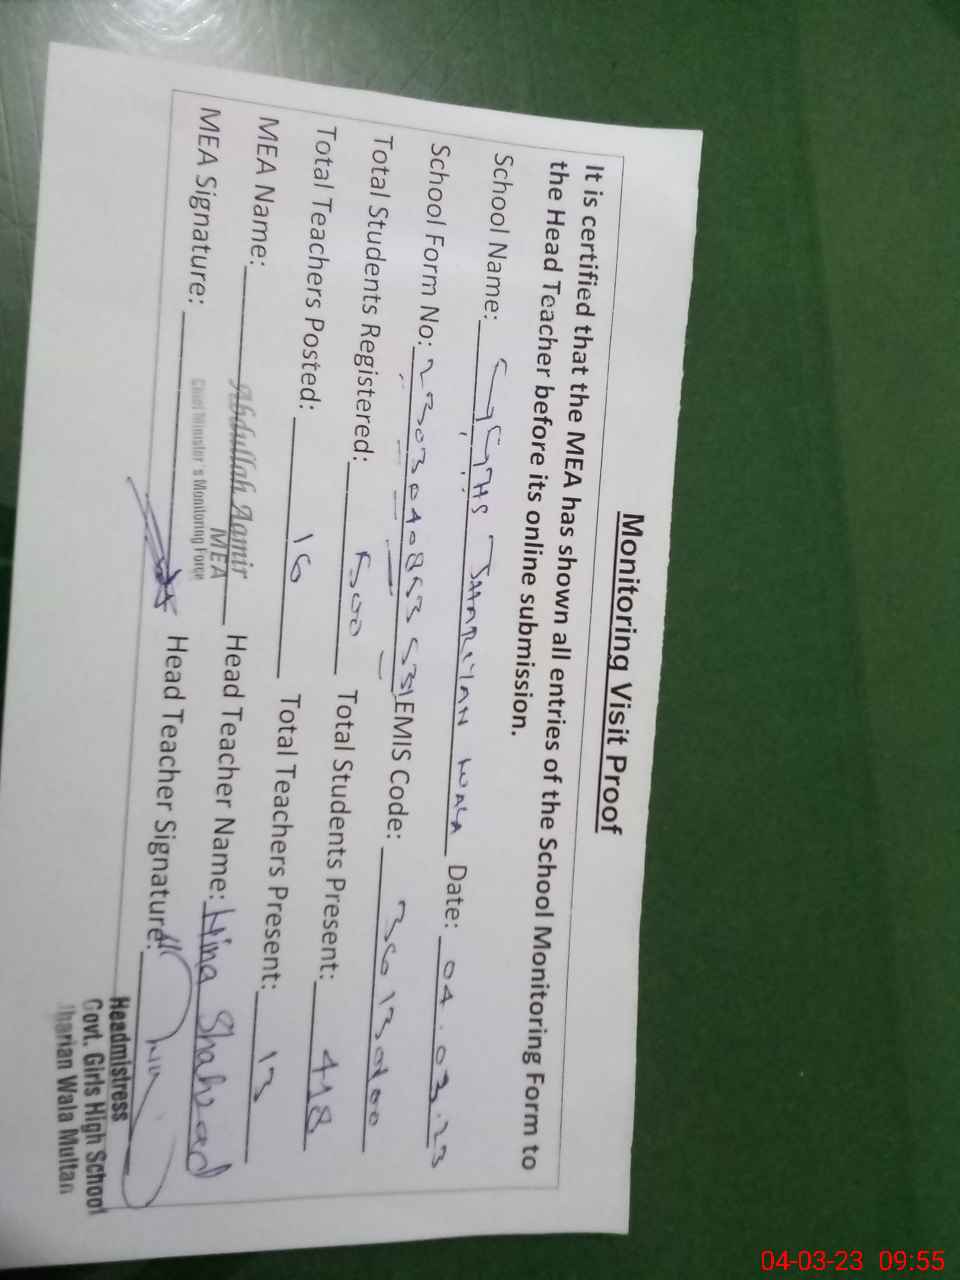 Monitoring Visit Proof
It is certified that the MEA has shown all entries of the School Monitoring Form to
the Head Teacher before its online submission.
School Name: GGHS JHARIYAN WALA Date: 04.03.23
School Form No: EMIS Code:
Total Students Registered: 500 Total Students Present: 418
Total Teachers Posted: 16 Total Teachers Present: 13
MEA Name: Abdullah Aamir Head Teacher Name: Hina Shahzad
MEA
Chief Minister's Monitoring Force
MEA Signature: Head Teacher Signature:
Headmistress
Govt. Girls High School
Jharian Wala Multan
04-03-23 09:55